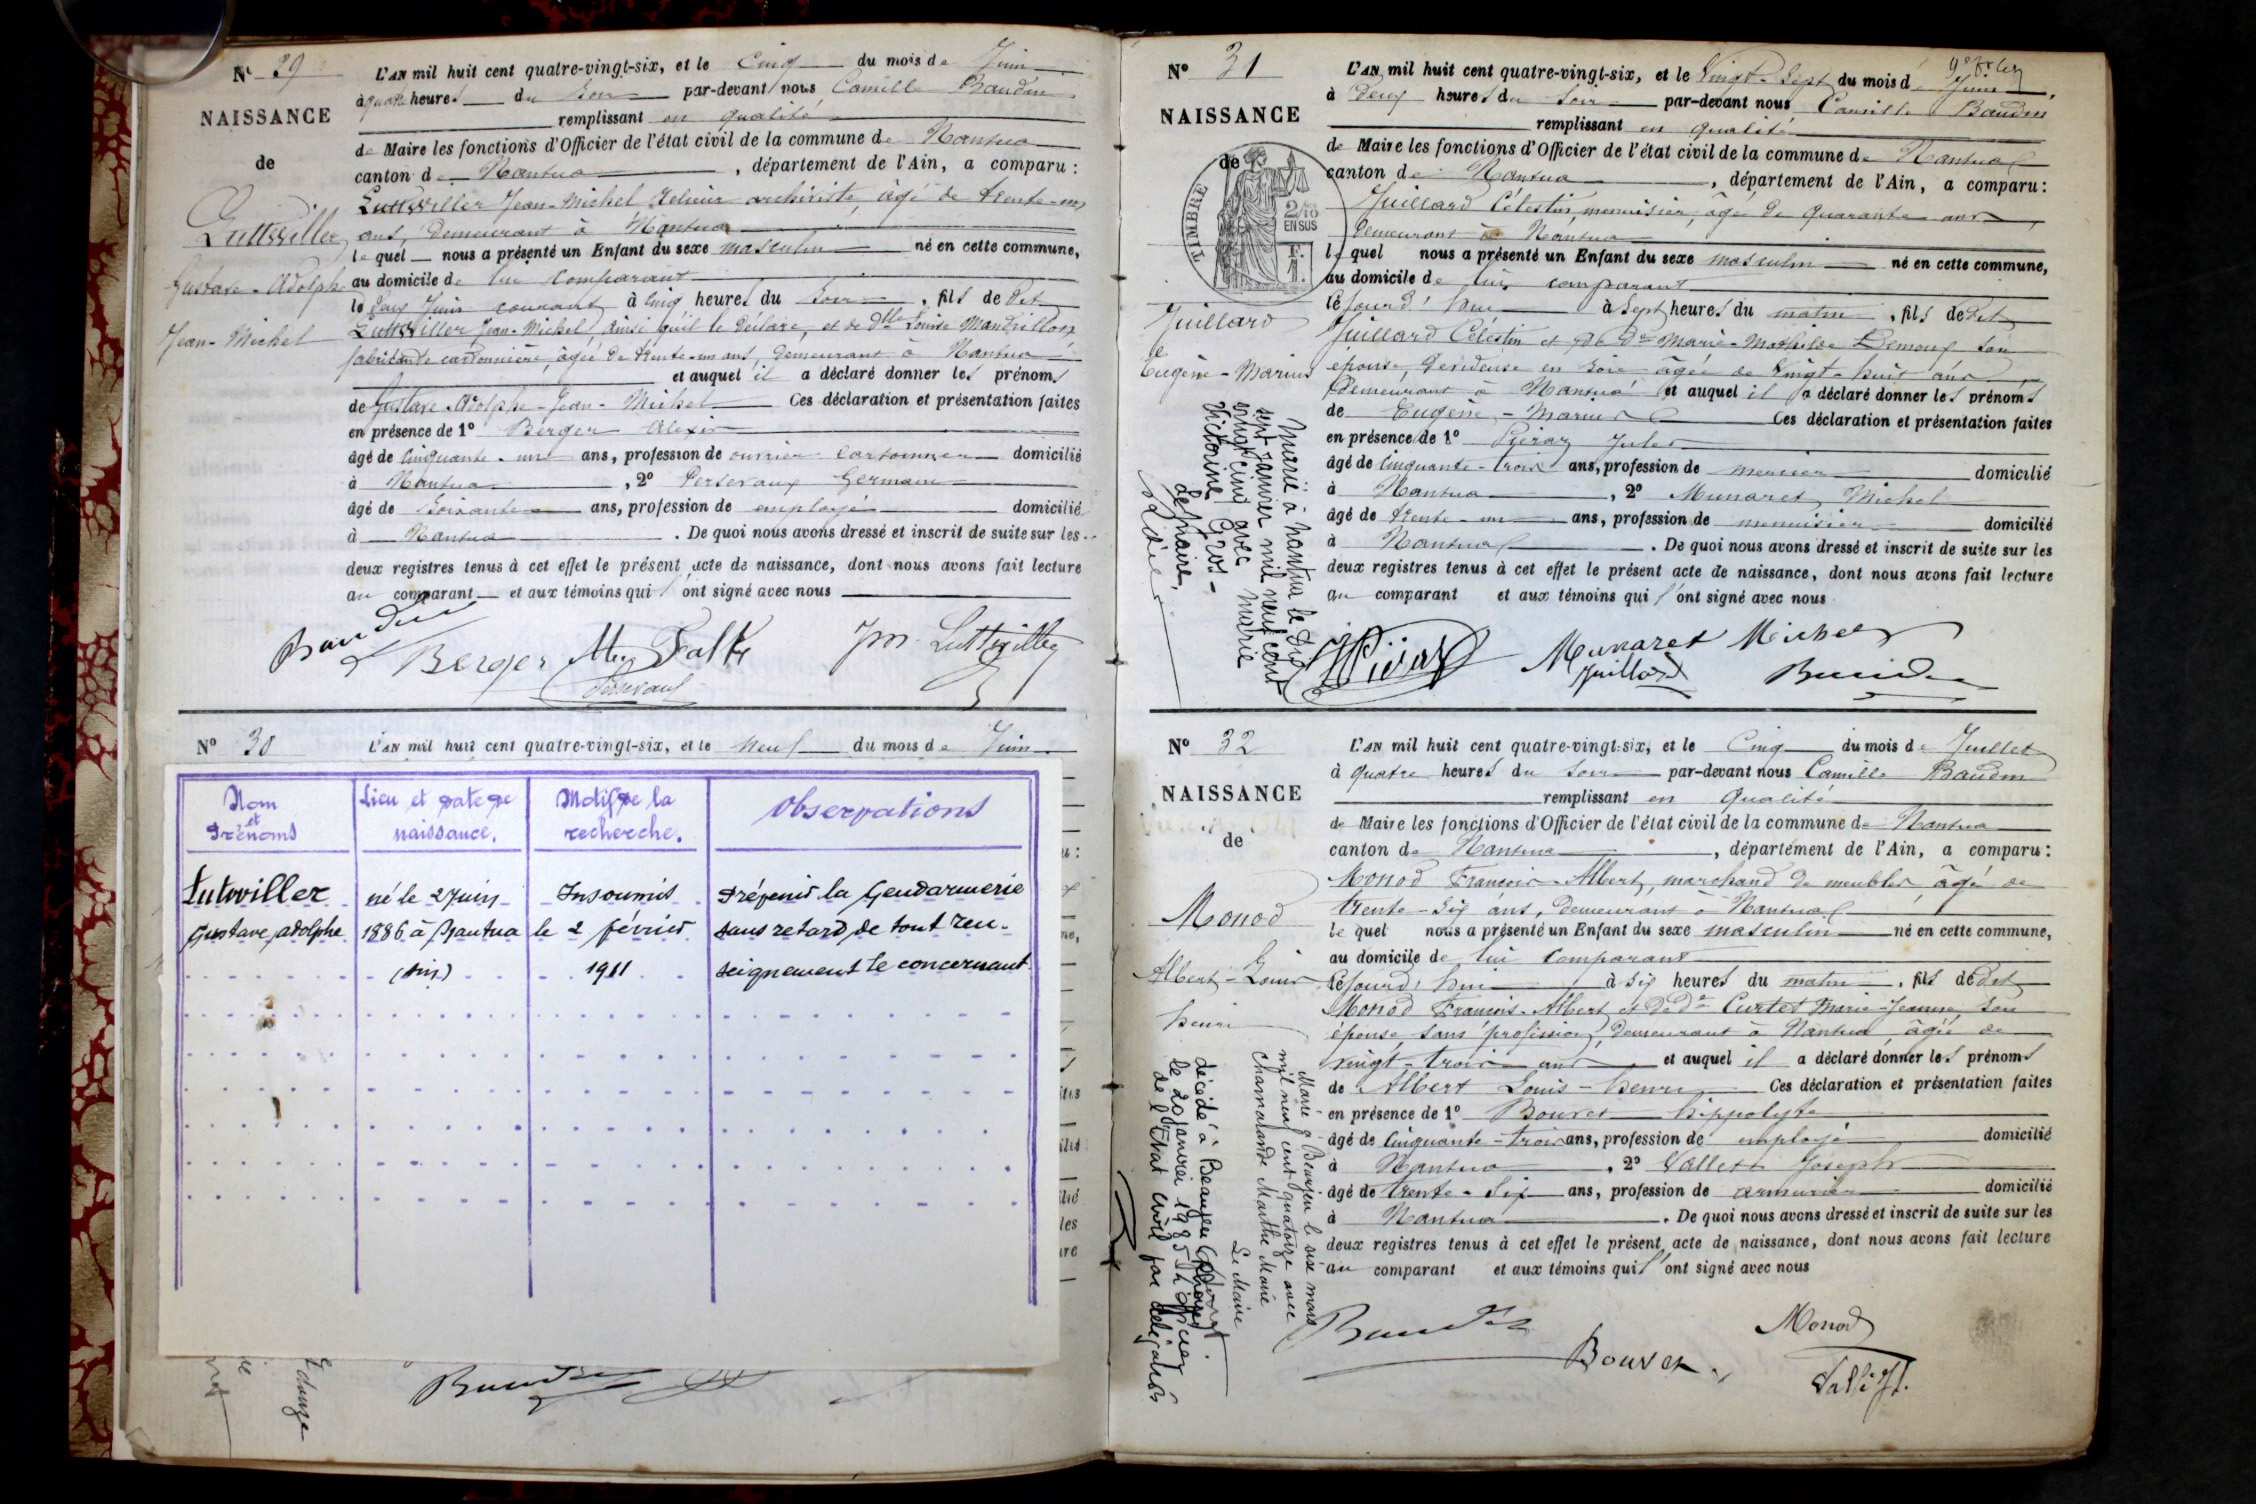 N° 29
NAISSANCE
de
Luttwiller
Gustave-Adolphe
Jean-Michel
L'AN mil huit cent quatre-vingt-six, et le Cinq du mois de Juin
à quatre heures du Soir par-devant nous Camille Baudin
remplissant en qualité
de Maire les fonctions d'Officier de l'état civil de la commune de Nantua
canton de Nantua, département de l'Ain, a comparu :
Luttwiller Jean-Michel Relieur archiviste, âgé de trente-un
ans, demeurant à Nantua
lequel nous a présenté un Enfant du sexe masculin né en cette commune,
au domicile de lui comparant
le deux Juin courant à Cinq heures du Soir, fils de Dit
Luttwiller Jean-Michel, ainsi qu'il le déclare, et de Dlle Louise Mandrillon
fabricante cartonnière, âgée de trente-un ans, demeurant à Nantua
et auquel il a déclaré donner les prénoms
de Gustave-Adolphe-Jean-Michel Ces déclaration et présentation faites
en présence de 1° Berger Alexis
âgé de Cinquante-un ans, profession de ouvrier cartonnier domicilié
à Nantua, 2° Persevaux Germain
âgé de Soixante ans, profession de employé domicilié
à Nantua. De quoi nous avons dressé et inscrit de suite sur les
deux registres tenus à cet effet le présent acte de naissance, dont nous avons fait lecture
au comparant et aux témoins qui l'ont signé avec nous
Baudin Berger Falke JM Luttwiller
Persevaux
N° 30
L'AN mil huit cent quatre-vingt-six, et le Neuf du mois de Juin
Nom et Prénoms
Lieu et date de naissance.
Motif de la recherche.
Observations
Lutwiller
Gustave, adolphe
né le 2 Juin
1886 à Nantua
(Ain)
Insoumis
le 2 février
1911
Prévenir la Gendarmerie
sans retard de tout ren-
seignement le concernant
Baudin
N° 31
NAISSANCE
de
TIMBRE
2/10
EN SUS
Juillard
Eugène-Marius
L'AN mil huit cent quatre-vingt-six, et le Vingt-Sept du mois de Juin
à Deux heures du Soir par-devant nous Camille Baudin
remplissant en qualité
de Maire les fonctions d'Officier de l'état civil de la commune de Nantua
canton de Nantua, département de l'Ain, a comparu :
Juillard Célestin, menuisier, âgé de quarante ans
demeurant à Nantua
lequel nous a présenté un Enfant du sexe masculin né en cette commune,
au domicile de lui comparant
cejourd'hui à Sept heures du matin, fils de Dit
Juillard Célestin et de De Marie-Mathilde Demoux son
épouse, dévideuse en Soie âgée de Vingt-huit ans
Demeurant à Nantua et auquel il a déclaré donner les prénoms
de Eugène-Marius Ces déclaration et présentation faites
en présence de 1° Piéray Jules
âgé de Cinquante-trois ans, profession de menuisier domicilié
à Nantua, 2° Munaret Michel
âgé de trente-un ans, profession de menuisier domicilié
à Nantua. De quoi nous avons dressé et inscrit de suite sur les
deux registres tenus à cet effet le présent acte de naissance, dont nous avons fait lecture
au comparant et aux témoins qui l'ont signé avec nous
Marié à Nantua le dix
sept Janvier mil neuf cent
vingt cinq avec Marie
Victorine Gros-
Munaret Michel
Juillard
Baudin
N° 32
NAISSANCE
de
Monod
Albert-Louis
henri
L'AN mil huit cent quatre-vingt-six, et le Cinq du mois de Juillet
à quatre heures du Soir par-devant nous Camille Baudin
remplissant en qualité
de Maire les fonctions d'Officier de l'état civil de la commune de Nantua
canton de Nantua, département de l'Ain, a comparu :
Monod François-Albert, marchand de meubles, âgé de
trente-Six ans, demeurant à Nantua
lequel nous a présenté un Enfant du sexe masculin né en cette commune,
au domicile de lui comparant
cejourd'hui à Six heures du matin, fils de Dit
Monod François-Albert et de De Curtet Marie-Jeanne son
épouse sans profession, demeurant à Nantua âgée de
vingt-trois ans et auquel il a déclaré donner les prénoms
de Albert Louis-henri Ces déclaration et présentation faites
en présence de 1° Bouvet hippolyte
âgé de Cinquante-trois ans, profession de employé domicilié
à Nantua, 2° Vallet Joseph
âgé de trente-Six ans, profession de armurier domicilié
à Nantua. De quoi nous avons dressé et inscrit de suite sur les
deux registres tenus à cet effet le présent acte de naissance, dont nous avons fait lecture
au comparant et aux témoins qui l'ont signé avec nous
Marié à Beaujeu le seize mars
mil neuf cent quatorze avec
Chamarande Marthe Marie
Le Maire
décédé à Beaujeu (Rhône)
le 20 janvier 1985 L'Officier
de l'Etat civil par délégation
Baudin
Bouvet
Monod